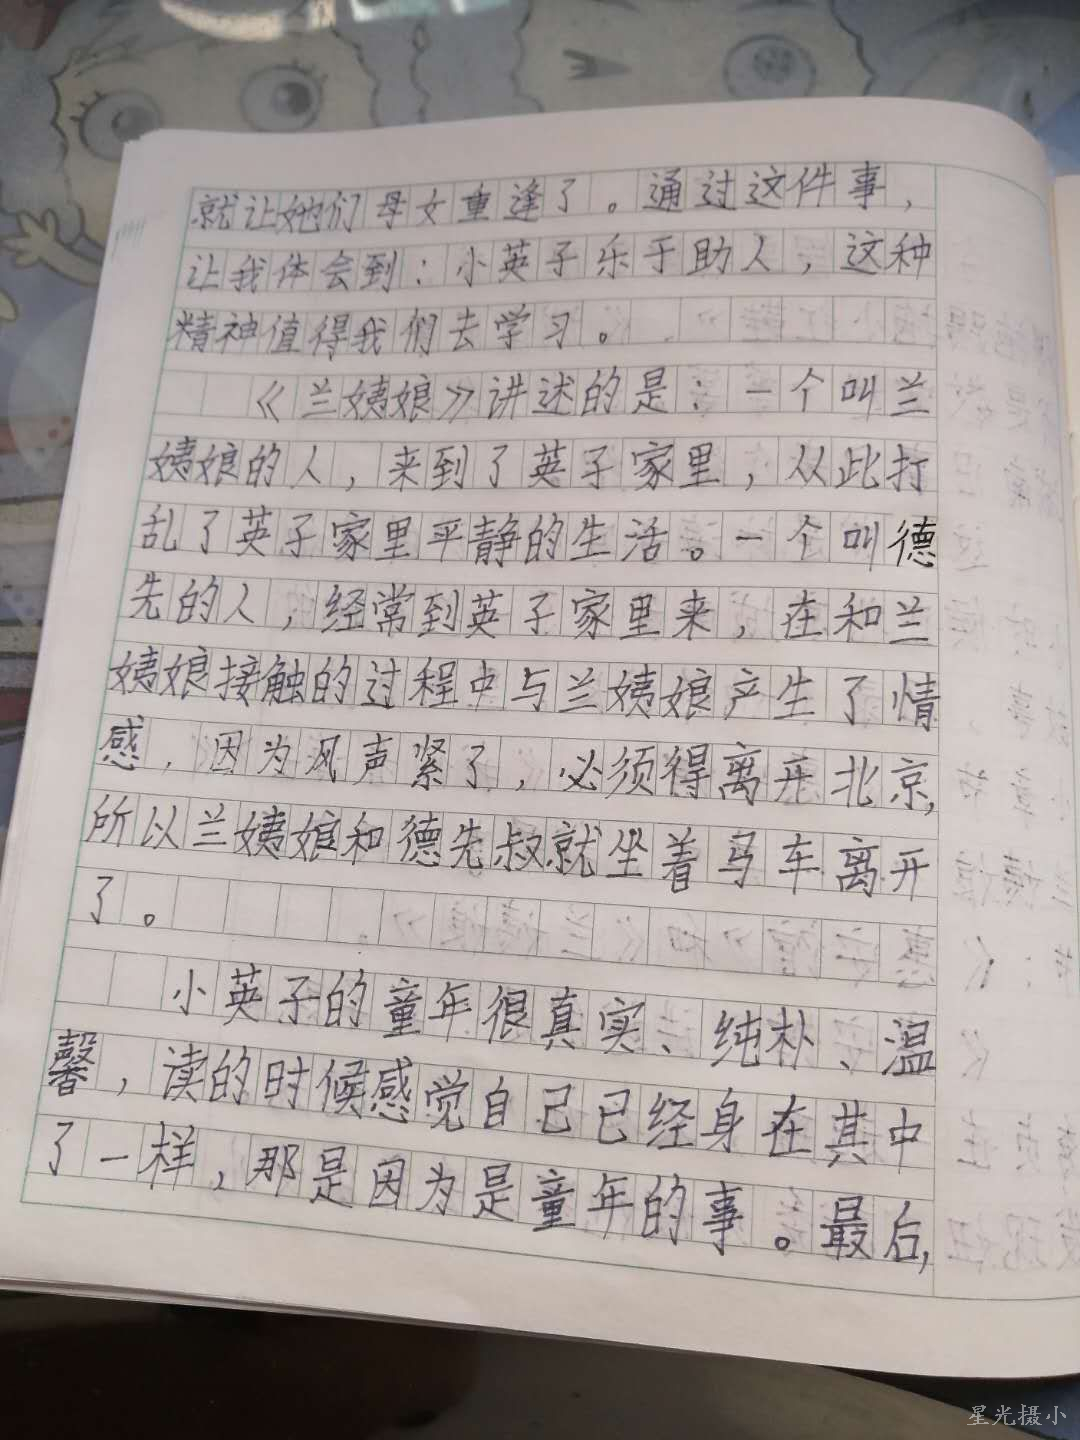 就让她们母女重逢了。通过这件事，
让我体会到：小英子乐于助人，这种
精神值得我们去学习。
《兰姨娘》讲述的是：一个叫兰
姨娘的人，来到了英子家里，从此打
乱了英子家里平静的生活。一个叫德
先的人，经常到英子家里来，在和兰
姨娘接触的过程中与兰姨娘产生了情
感，因为风声紧了，必须得离开北京，
所以兰姨娘和德先叔就坐着马车离开
了。
小英子的童年很真实、纯朴、温
馨，读的时候感觉自己已经身在其中
了一样，那是因为是童年的事。最后，
星光摄小